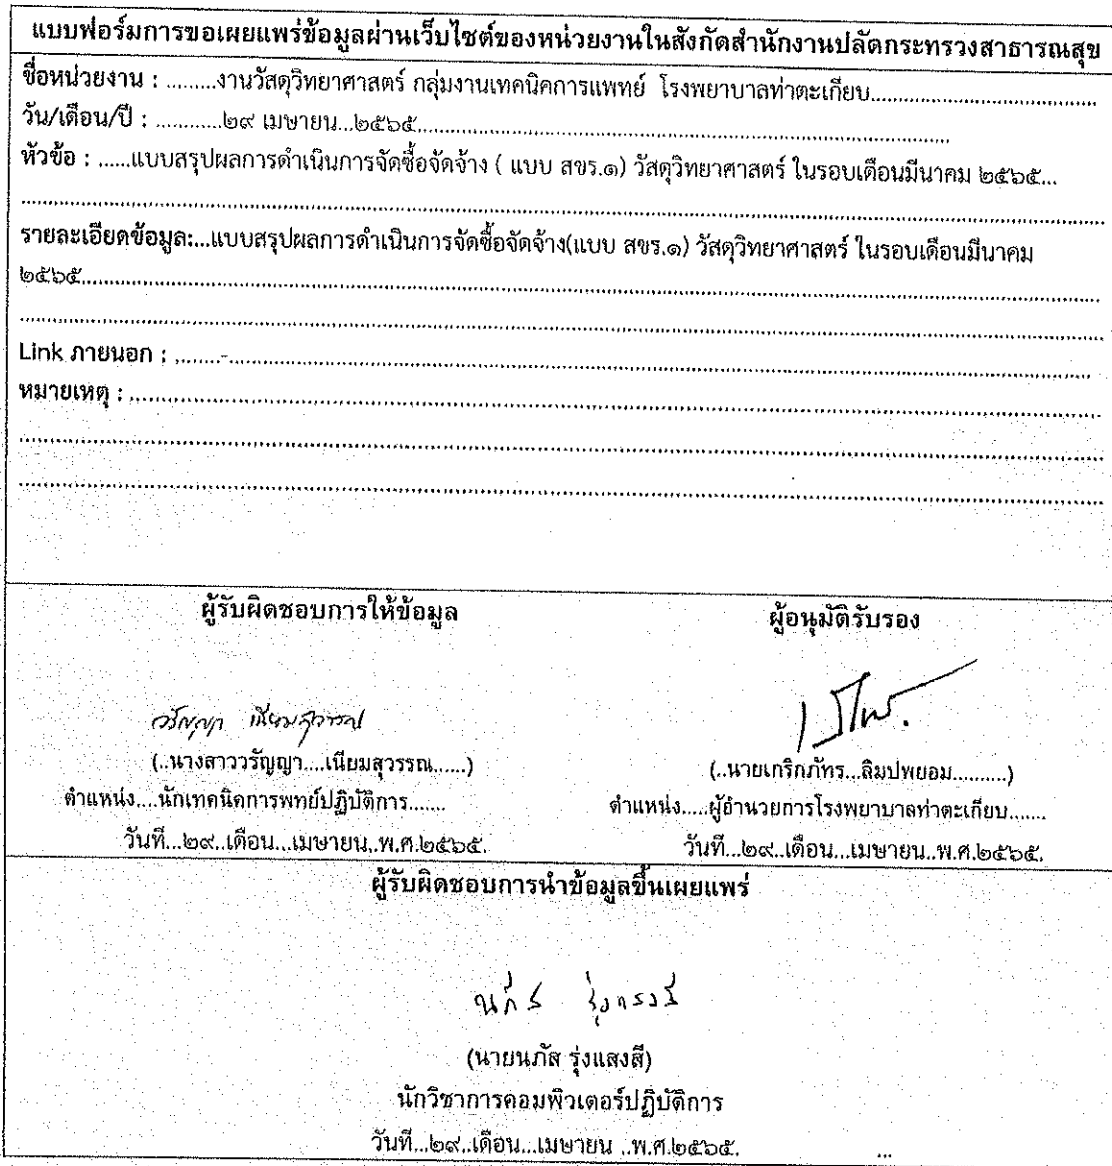 แบบฟอร์มการขอเผยแพร่ข้อมูลผ่านเว็บไซต์ของหน่วยงานในสังกัดสำนักงานปลัดกระทรวงสาธารณสุข
ชื่อหน่วยงาน : .........งานวัสดุวิทยาศาสตร์ กลุ่มงานเทคนิคการแพทย์ โรงพยาบาลท่าตะเกียบ..........
วัน/เดือน/ปี : ...........๒๙ เมษายน...๒๕๖๕..........
หัวข้อ : ......แบบสรุปผลการดำเนินการจัดซื้อจัดจ้าง ( แบบ สขร.๑) วัสดุวิทยาศาสตร์ ในรอบเดือนมีนาคม ๒๕๖๕...
รายละเอียดข้อมูล:...แบบสรุปผลการดำเนินการจัดซื้อจัดจ้าง(แบบ สขร.๑) วัสดุวิทยาศาสตร์ ในรอบเดือนมีนาคม
๒๕๖๕..........
Link ภายนอก : ........-..........
หมายเหตุ : ..........
ผู้รับผิดชอบการให้ข้อมูล ผู้อนุมัติรับรอง
วรัญญา เนียมสุวรรณ
(..นางสาววรัญญา....เนียมสุวรรณ......) (..นายเกริกภัทร...ลิมปพยอม..........)
ตำแหน่ง....นักเทคนิคการพทย์ปฏิบัติการ....... ตำแหน่ง.....ผู้อำนวยการโรงพยาบาลท่าตะเกียบ.......
วันที่...๒๙..เดือน...เมษายน..พ.ศ.๒๕๖๕. วันที่...๒๙..เดือน...เมษายน..พ.ศ.๒๕๖๕.
ผู้รับผิดชอบการนำข้อมูลขึ้นเผยแพร่
นภัส รุ่งแสงสี
(นายนภัส รุ่งแสงสี)
นักวิชาการคอมพิวเตอร์ปฏิบัติการ
วันที่...๒๙..เดือน...เมษายน ..พ.ศ.๒๕๖๕. ...